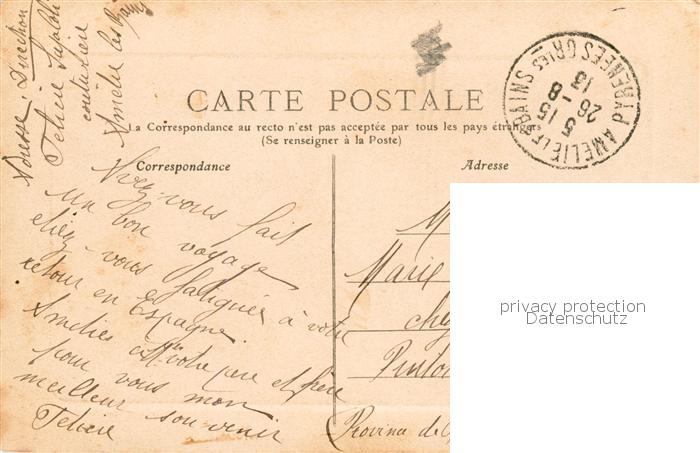 Adresse, Direction
Felicie
couturière
Amélie les Bains
CARTE POSTALE
La Correspondance au recto n'est pas acceptée par tous les pays étrangers
(Se renseigner à la Poste)
AMELIE LES BAINS PYRENEES ORles
3 15
26-8
13
Correspondance
Avez-vous fait
un bon voyage
étiez-vous fatiguée à votre
retour en Espagne.
Amitiés à votre père et frère
pour vous mon
meilleur souvenir
Felicie
Adresse
M
Marie
chez
Provincia de
privacy protection
Datenschutz